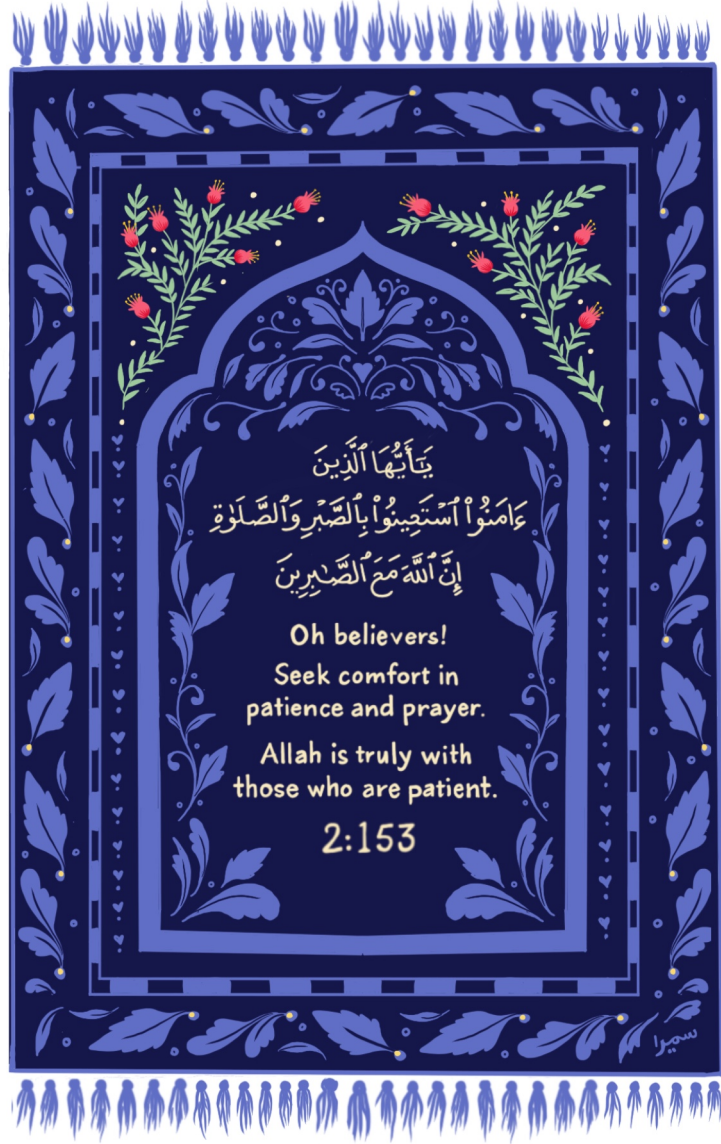 يَـٰٓأَيُّهَا ٱلَّذِينَ
ءَامَنُوا۟ ٱسْتَعِينُوا۟ بِٱلصَّبْرِ وَٱلصَّلَوٰةِ
إِنَّ ٱللَّهَ مَعَ ٱلصَّـٰبِرِينَ
Oh believers!
Seek comfort in
patience and prayer.
Allah is truly with
those who are patient.
2:153
سميرا